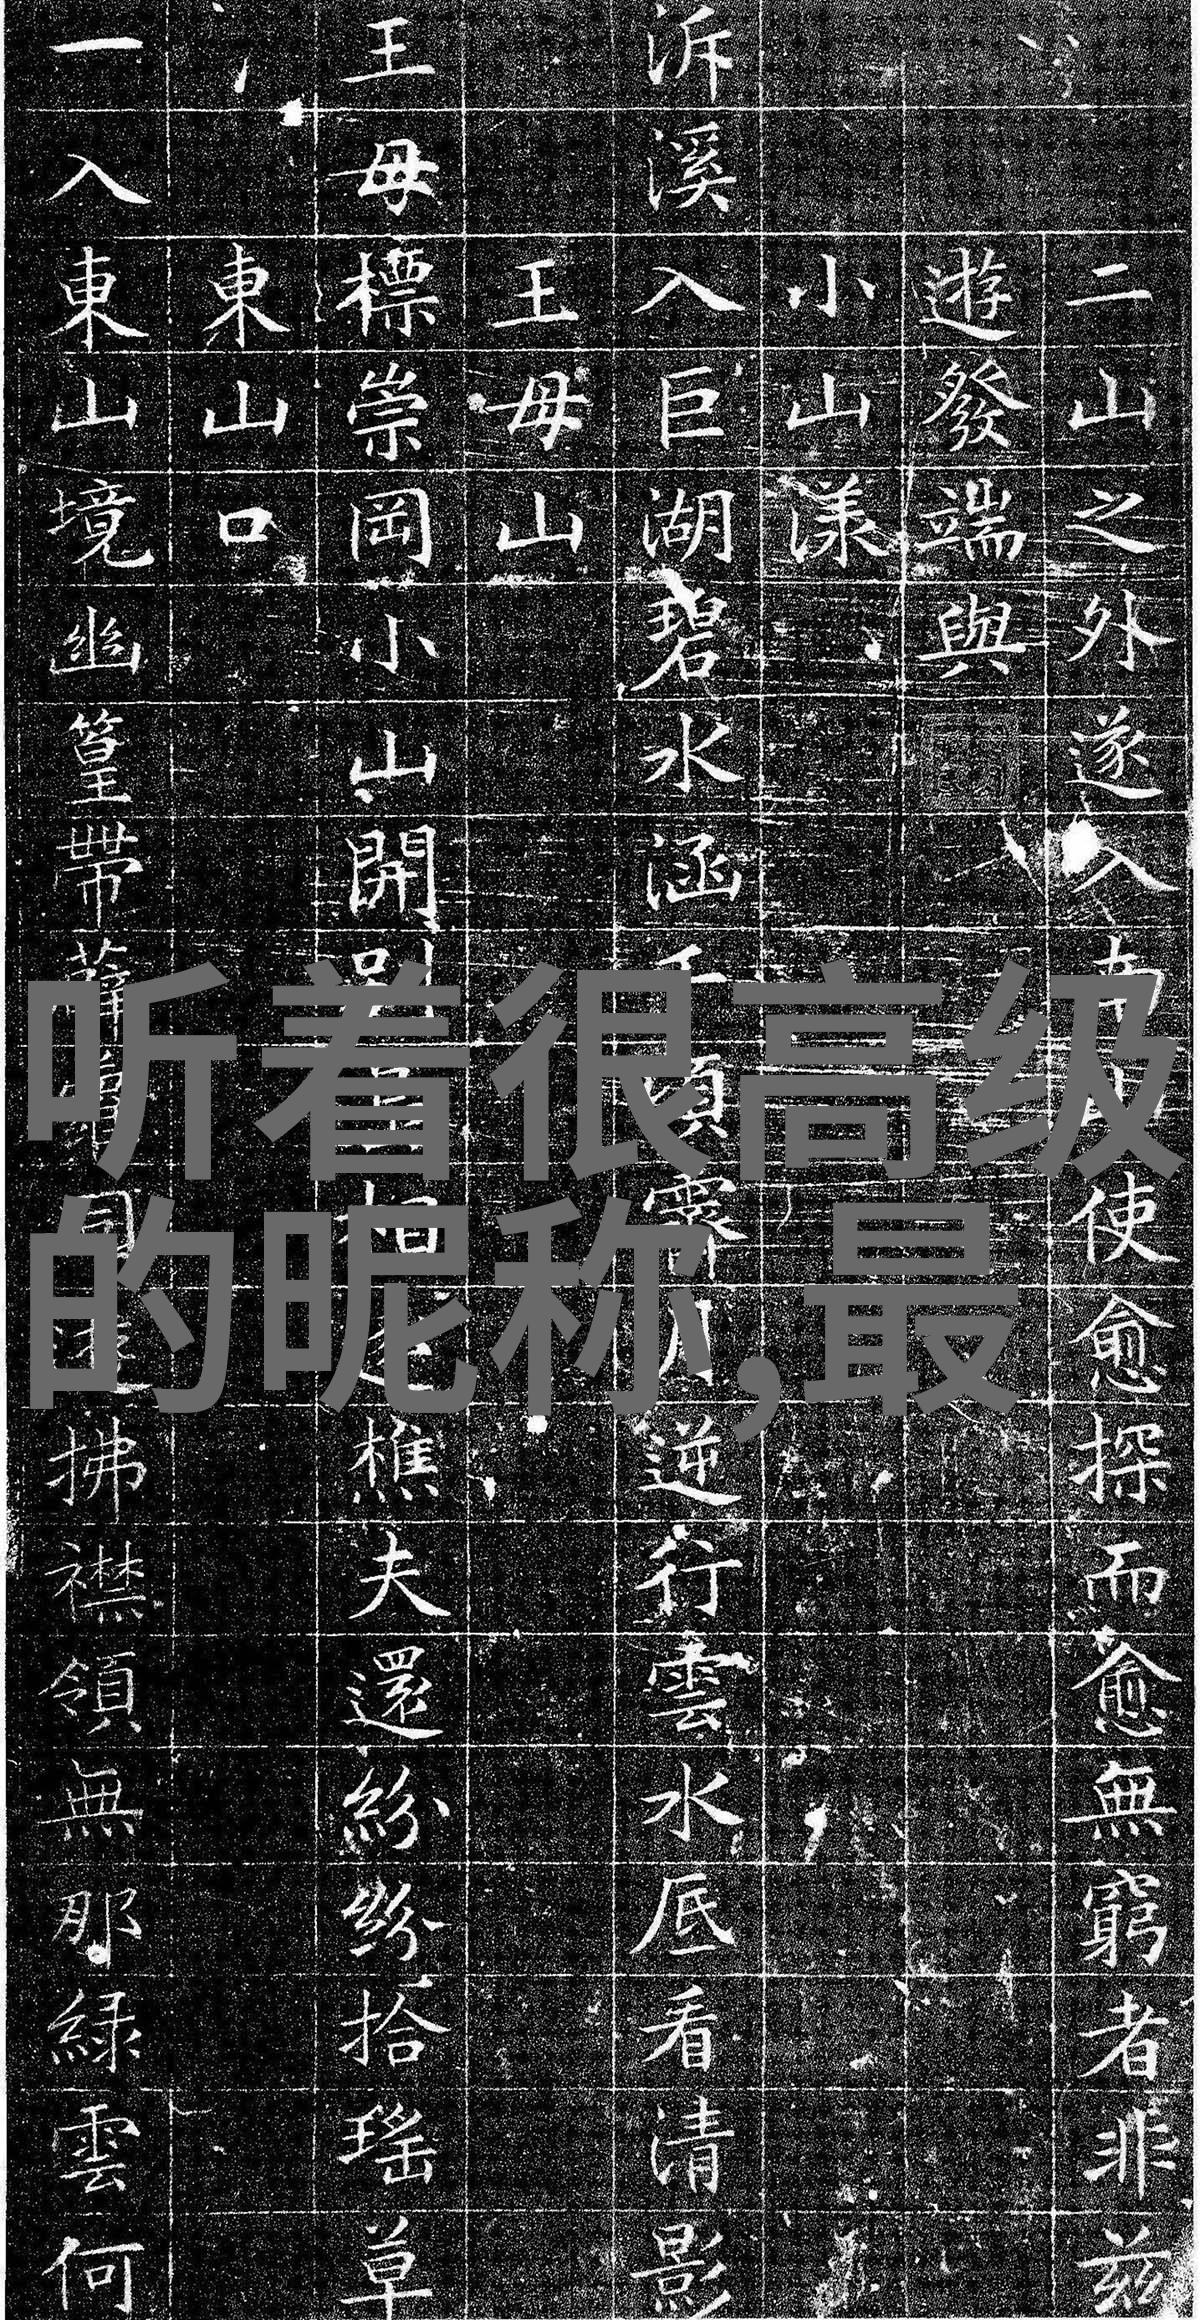 二山之外遂入使愈探而愈無窮者非茲
遊發端與
小山漾
泝溪入巨湖碧水涵千頃霽月逆行雲水底看清影
王母山
王母標崇岡小山開別相樵夫還紛紛拾瑤草
東山口
一入東山境幽篁帶拂襟領無那綠雲何
听着很高级
的昵称,最